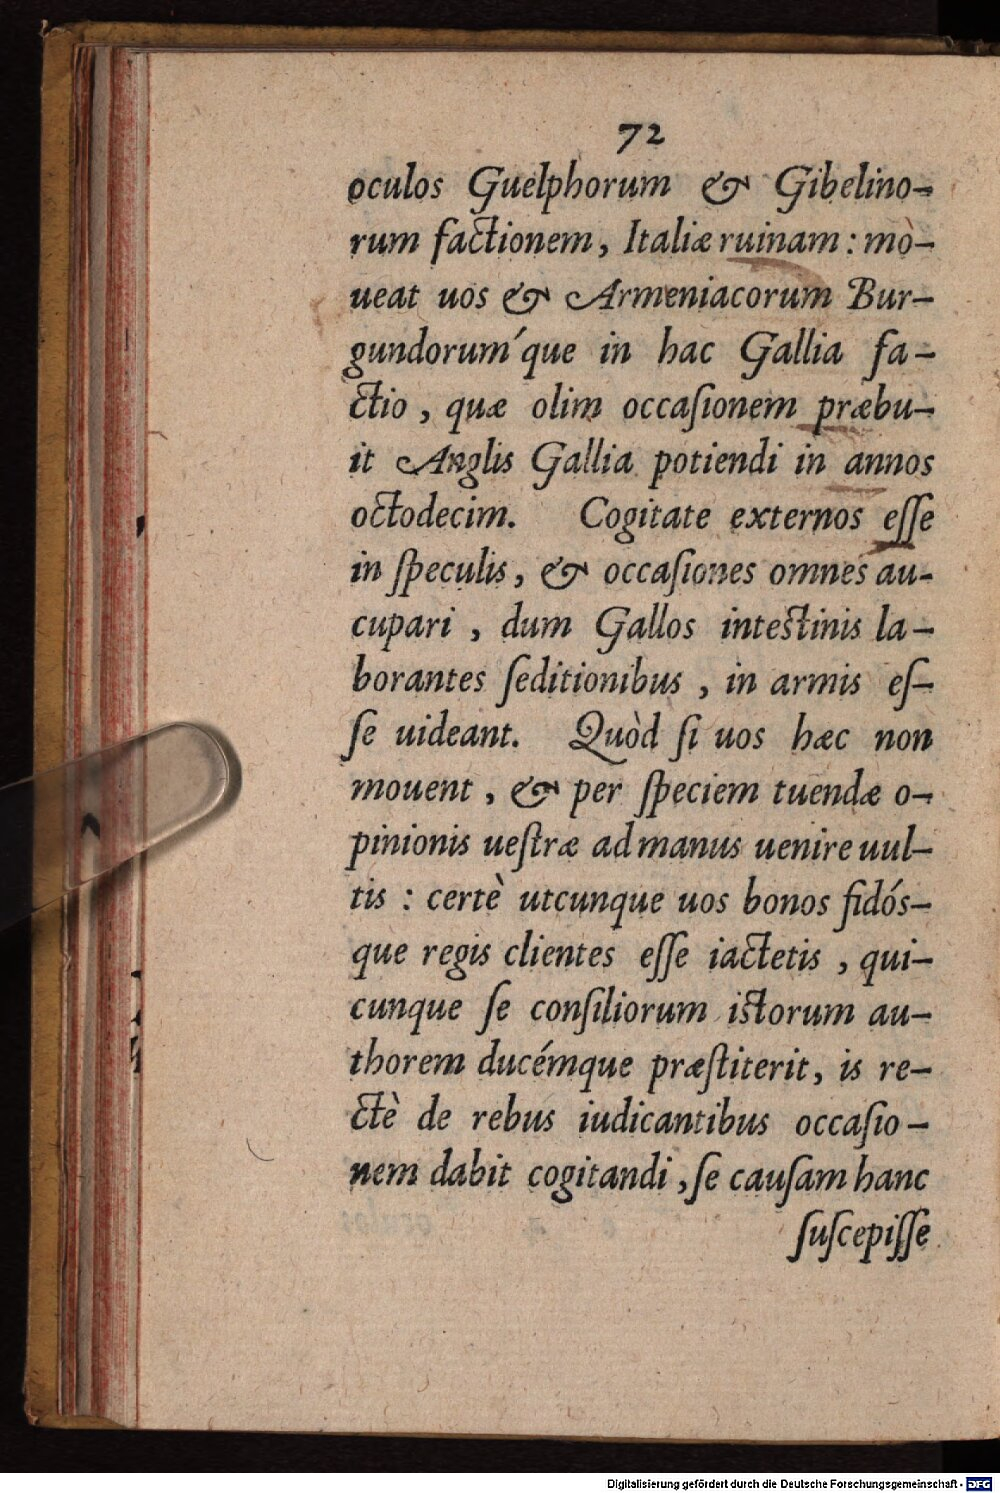 72
oculos Guelphorum & Gibelino-
rum factionem, Italiæ ruinam : mo-
ueat uos & Armeniacorum Bur-
gundorum´que in hac Gallia fa-
ctio, quæ olim occaſionem præbu-
it Anglis Gallia potiendi in annos
octodecim. Cogitate externos eſſe
in ſpeculis, & occaſiones omnes au-
cupari, dum Gallos inteſtinis la-
borantes ſeditionibus, in armis eſ-
ſe uideant. Quòd ſi uos hæc non
mouent, & per ſpeciem tuendæ o-
pinionis ueſtræ ad manus uenire uul-
tis : certè utcunque uos bonos fidós-
que regis clientes eſſe iactetis, qui-
cunque ſe conſiliorum iſtorum au-
thorem ducémque præſtiterit, is re-
ctè de rebus iudicantibus occaſio-
nem dabit cogitandi, ſe cauſam hanc
ſuſcepiſſe
Digitalisierung gefördert durch die Deutsche Forschungsgemeinschaft - DFG